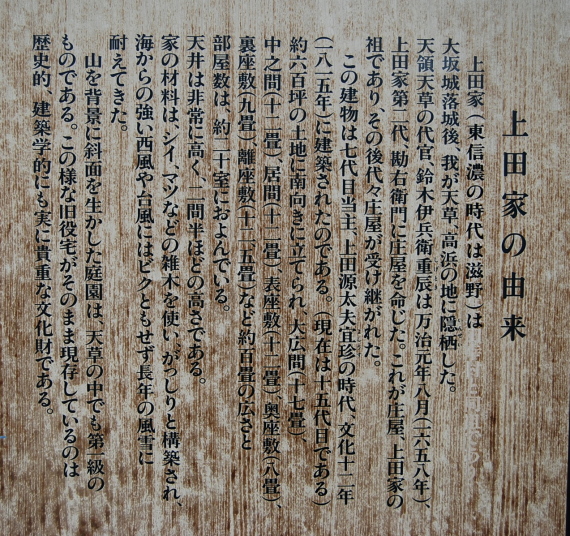 上田家の由来
上田家(東信濃の時代は滋野)は
大坂城落城後、我が天草、高浜の地に隠栖した。
天領天草の代官、鈴木伊兵衛重辰は万治元年八月(一六五八年)、
上田家第二代、勘右衛門に庄屋を命じた。これが庄屋、上田家の
祖であり、その後代々庄屋が受け継がれた。
この建物は七代目当主、上田源太夫宜珍の時代、文化十二年
(一八一五年)に建築されたのである。(現在は十五代目である)
約六百坪の土地に南向きに立てられ、大広間(十七畳)、
中之間(十二畳)、居間(十二畳)、表座敷(十二畳)、奥座敷(八畳)、
裏座敷(九畳)、離座敷(十二、五畳)など約百畳の広さと
部屋数は、約二十室におよんでいる。
天井は非常に高く、二間半ほどの高さである。
家の材料は、シイ、マツなどの雑木を使い、がっしりと構築され、
海からの強い西風や台風にはビクともせず長年の風雪に
耐えてきた。
山を背景に斜面を生かした庭園は、天草の中でも第一級の
ものである。この様な旧役宅がそのまま現存しているのは
歴史的、建築学的にも実に貴重な文化財である。